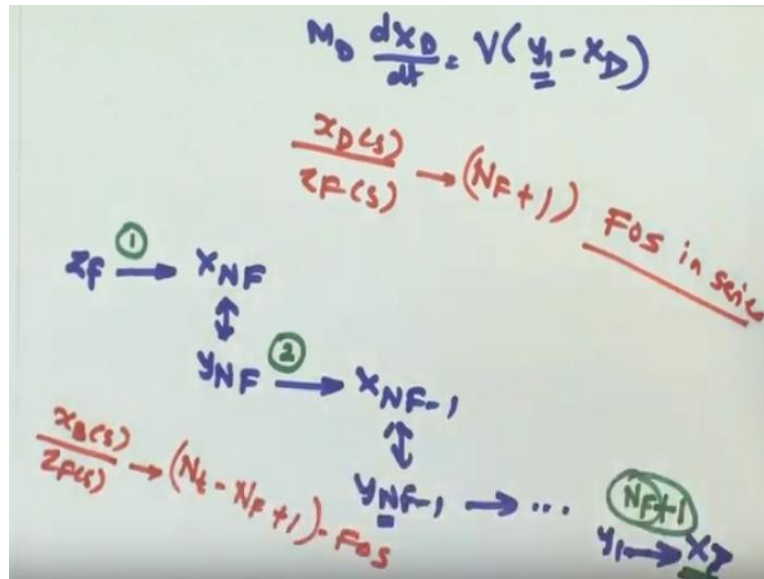 M_D dx_D/dt = V(y_1 - x_D)
x_D(s)/z_F(s) → (N_F+1) FOS in serie
z_F ① → x_NF
↕
y_NF ② → x_NF-1
↕
y_NF-1 → ... N_F+1
y_1 → x_D
x_B(s)/z_F(s) → (N_t - N_F+1) - FOS